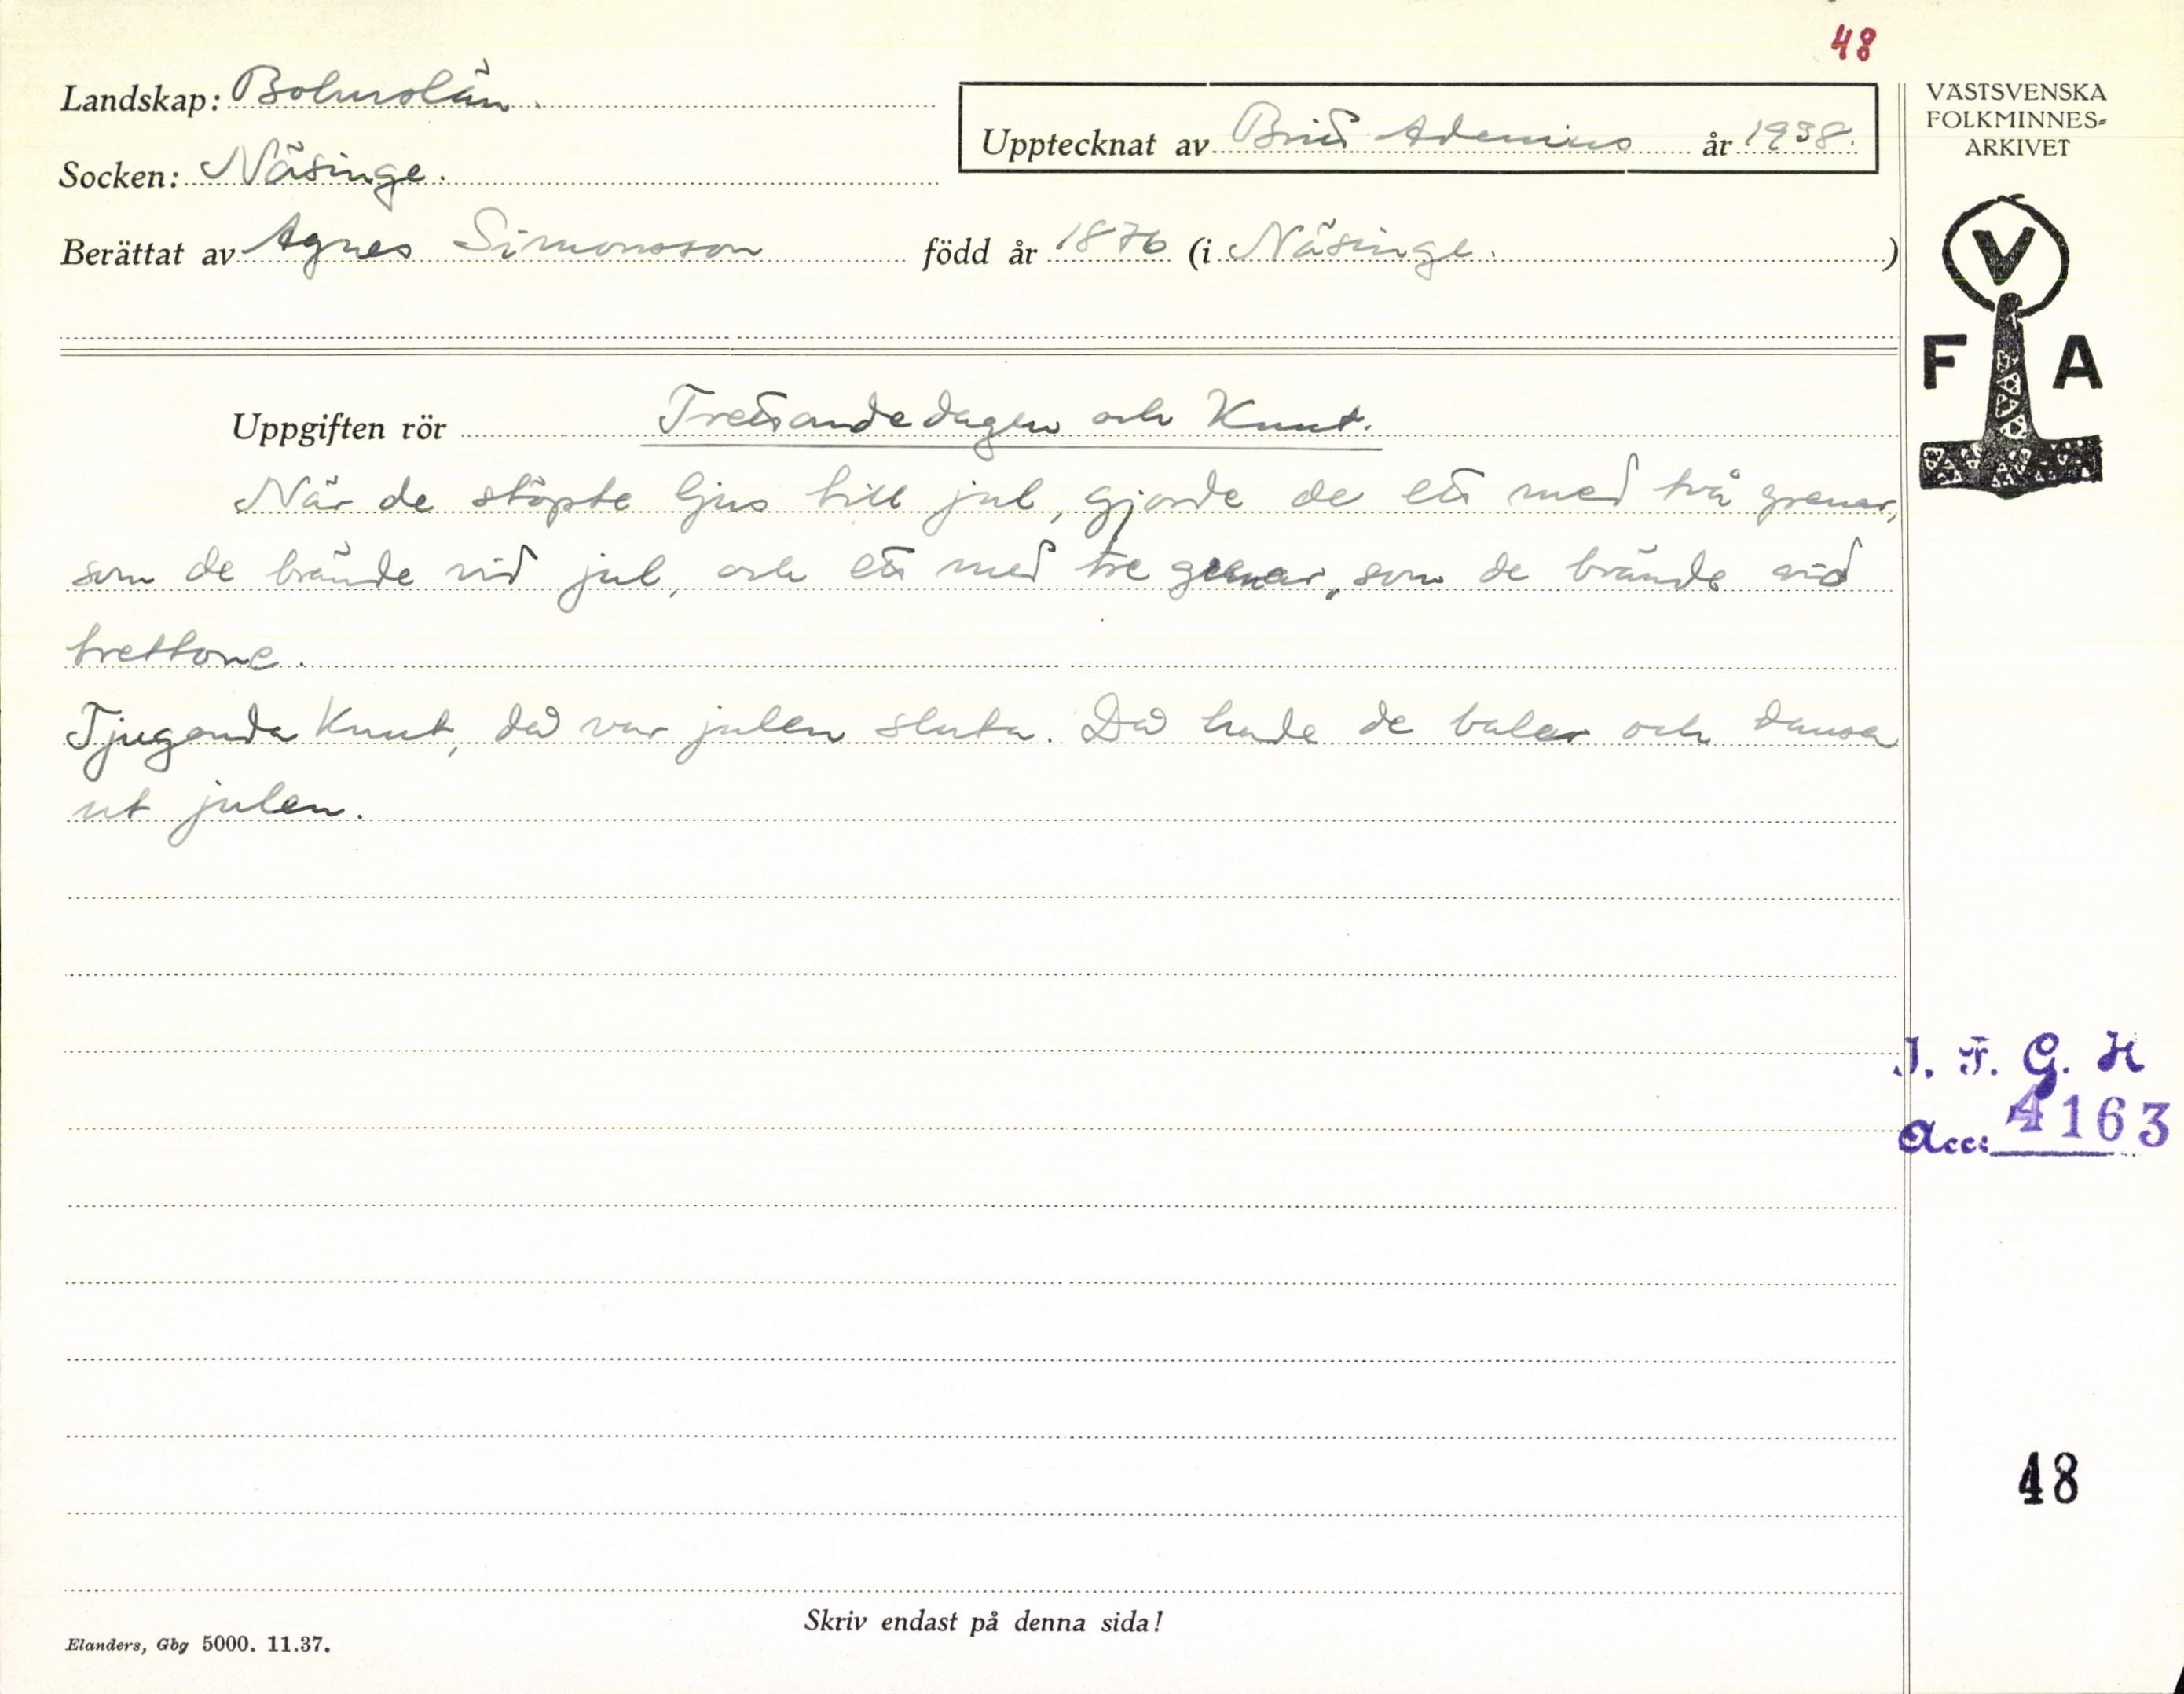 48
Landskap: Bohuslän.
Upptecknat av Britt Adenius år 1938.
Socken: Näsinge.
Berättat av Agnes Simonsson född år 1876 (i Näsinge. )
VÄSTSVENSKA
FOLKMINNES-
ARKIVET
V
F A
Uppgiften rör Trettandedagen och Knut.
När de stöpte ljus till jul, gjorde de ett med två grenar,
som de brände vid jul, och ett med tre grenar, som de brände vid
trettone.
Tjuganda Knut, då var julen sluta. Då hade de baler och dansa
ut julen.
I. F. G. H
Acc: 4163
48
Skriv endast på denna sida!
Elanders, Gbg 5000. 11.37.